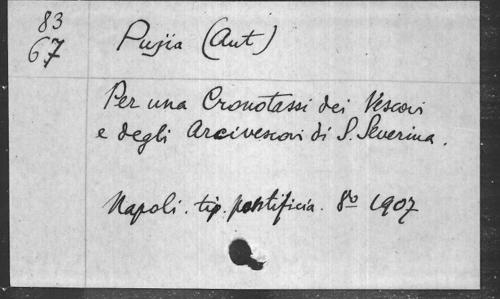 83
67
Pujia (Ant)
Per una Cronotassi dei Vescovi
e degli Arcivescovi di S. Severina.
Napoli. tip. pontificia. 8º 1907